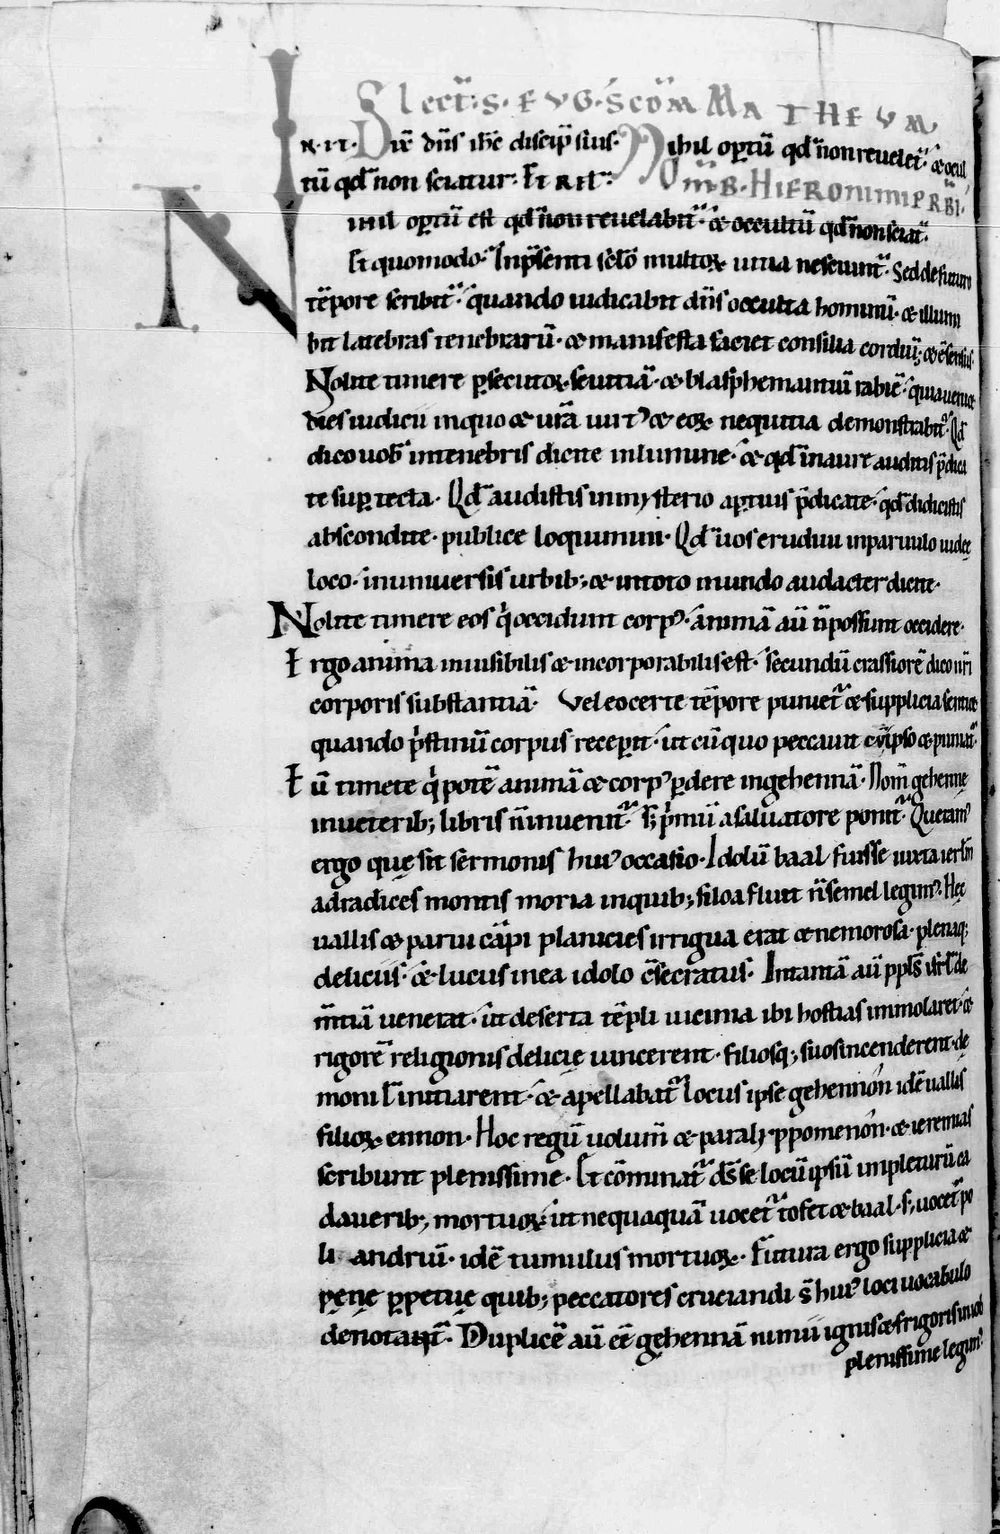 Lect̄. S. EVG. Scd̄m MATHEVM.
IN. IT. Dix̄ dn̄s ih̄c discip̄ suis. Nihil op̄tū qd̄ non reuelet̄. & occul
tū qd̄ non sciatur. Et rel̄. OM̄B. HIERONIMI PRBI.
Nihil op̄tū est qd̄ non reuelabit̄. & occultū qd̄ non sciat̄.
Et quomodo. In p̄senti sc̄lo multoꝝ uitia nesciunt̄. Sed de futuro
tēpore scribit̄. quando iudicabit dn̄s occulta hominū. & illumi
bit latebras tenebrarū. & manifesta faciet consilia cordiū; & ē sensus.
Nolite timere p̄secutoꝝ seuitiā. & blasphemantiū rabiē. quia ueniet
dies iudicii in quo & ur̄a uirtꝰ & eoꝝ nequitia demonstrabit̄. Qd̄
dico uob̄ in tenebris dicite in lumine. & qd̄ in aure auditis p̄dica
te sup̄ tecta. Qd̄ audistis in mysterio ap̄tius p̄dicate. qd̄ didicistis
abscondite. publice loquimini. Qd̄ uos erudiui in paruulo iudeę
loco. in uniuersis urbib; & in toto mundo audacter dicite.
Nolite timere eos q̇ occidunt corpꝰ. animā aū n̄ possunt occidere.
Ergo anima inuisibilis & incorporabilis est. secundū crassiorē dico nr̄i
corporis substantiā. Vel eo certe tēpore puniet̄ & supplicia sentiet
quando p̄stinū corpus recep̄it. ut cū quo peccauit cū ipso & puniat̄.
Eū timete q̇ potē animā & corpꝰ p̄dere in gehennā. Nom̄ gehenne
in ueterib; libris n̄ inuenit̄. s; p̄mū a saluatore ponit̄. Queramꝰ
ergo quę sit sermonis huiꝰ occasio. Idolū baal fuisse iuxta ierl̄m
ad radices montis moria in quib; siloa fluit n̄ semel legimꝰ. Hęc
uallis & parui cāpi planicies irrigua erat & nemorosa. plenaq;
deliciis. & lucus in ea idolo cōsecratus. In tantā aū ppl̄s isr̄l de
m̄tiā uenerat. ut deserta tēpli uicinia ibi hostias immolaret. &
rigorē religionis delicię uincerent. filiosq; suos incenderent. de
moni l̄ initiarent. & apellabat̄ locus ipse gehennōn idē uallis
filioꝝ ennon. Hoc regū uolum̄ & paralyppomenōn. & ieremias
scribunt plenissime. Et cōminat̄ ds̄ se locū ipsū impleturū ca
dauerib; mortuoꝝ. ut nequaquā uocet̄ tofet & baal. s; uocet̄ po
li andriū. idē tumulus mortuoꝝ. Futura ergo supplicia &
pęnę p̄petuę quib; peccatores cruciandi s̄ huiꝰ loci uocabulo
denotant̄. Duplicē aū eē gehennā nimii ignis & frigoris in iob
plenissime legimꝰ.